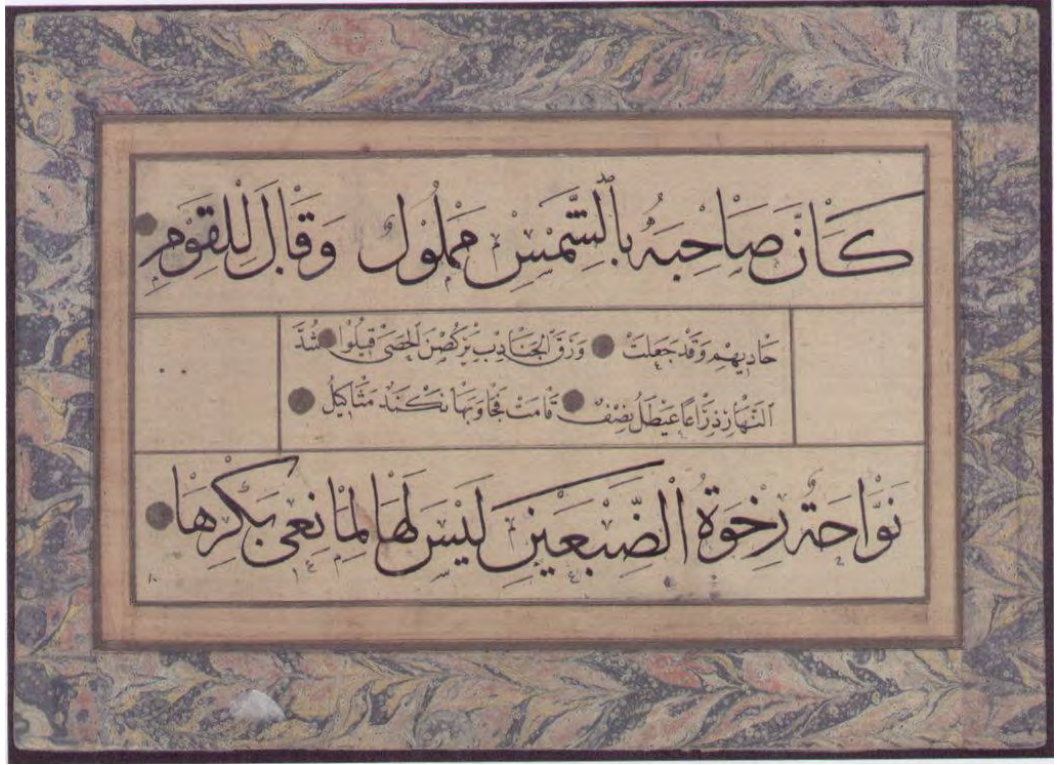 كَأَنَّ صَاحِبَهُ بِالشَّمْسِ مَمْلُولُ وَقَالَ لِلْقَوْمِ
حَادِيهِمْ وَقَدْ جَعَلَتْ وُرْقُ الْجَنَادِبِ يَرْكُضْنَ الْحَصَى قِيلُوا شَدَّ
النَّهَارِ ذِرَاعًا عَيْطَلٍ نَصَفٍ قَامَتْ فَجَاوَبَهَا نُكْدٌ مَثَاكِيلُ
نَوَّاحَةٌ رِخْوَةُ الضَّبْعَيْنِ لَيْسَ لَهَا لَمَّا نَعَى بِكْرَهَا